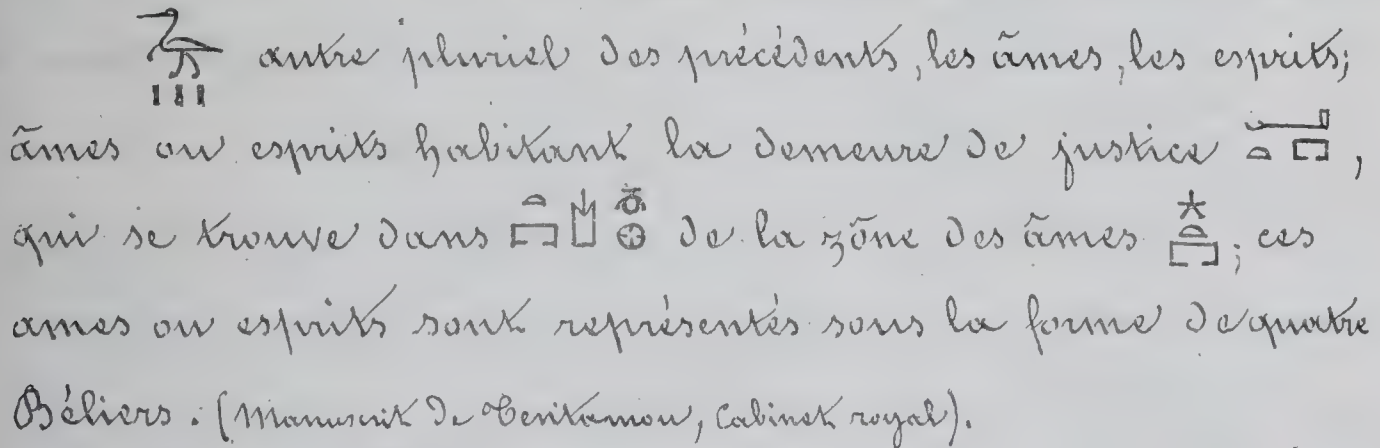 autre pluriel des précédents, les âmes, les esprits;
âmes ou esprits habitant la demeure de justice ,
qui se trouve dans de la zône des âmes ; ces
ames ou esprits sont représentés sous la forme de quatre
Béliers. (Manuscrit de Tentamou, Cabinet royal).